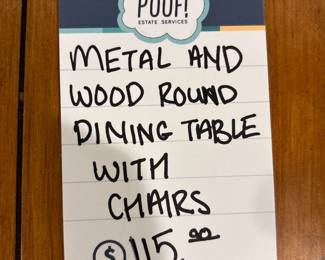 POOF!
ESTATE SERVICES
METAL AND
WOOD ROUND
DINING TABLE
WITH
CHAIRS
$ 115.00